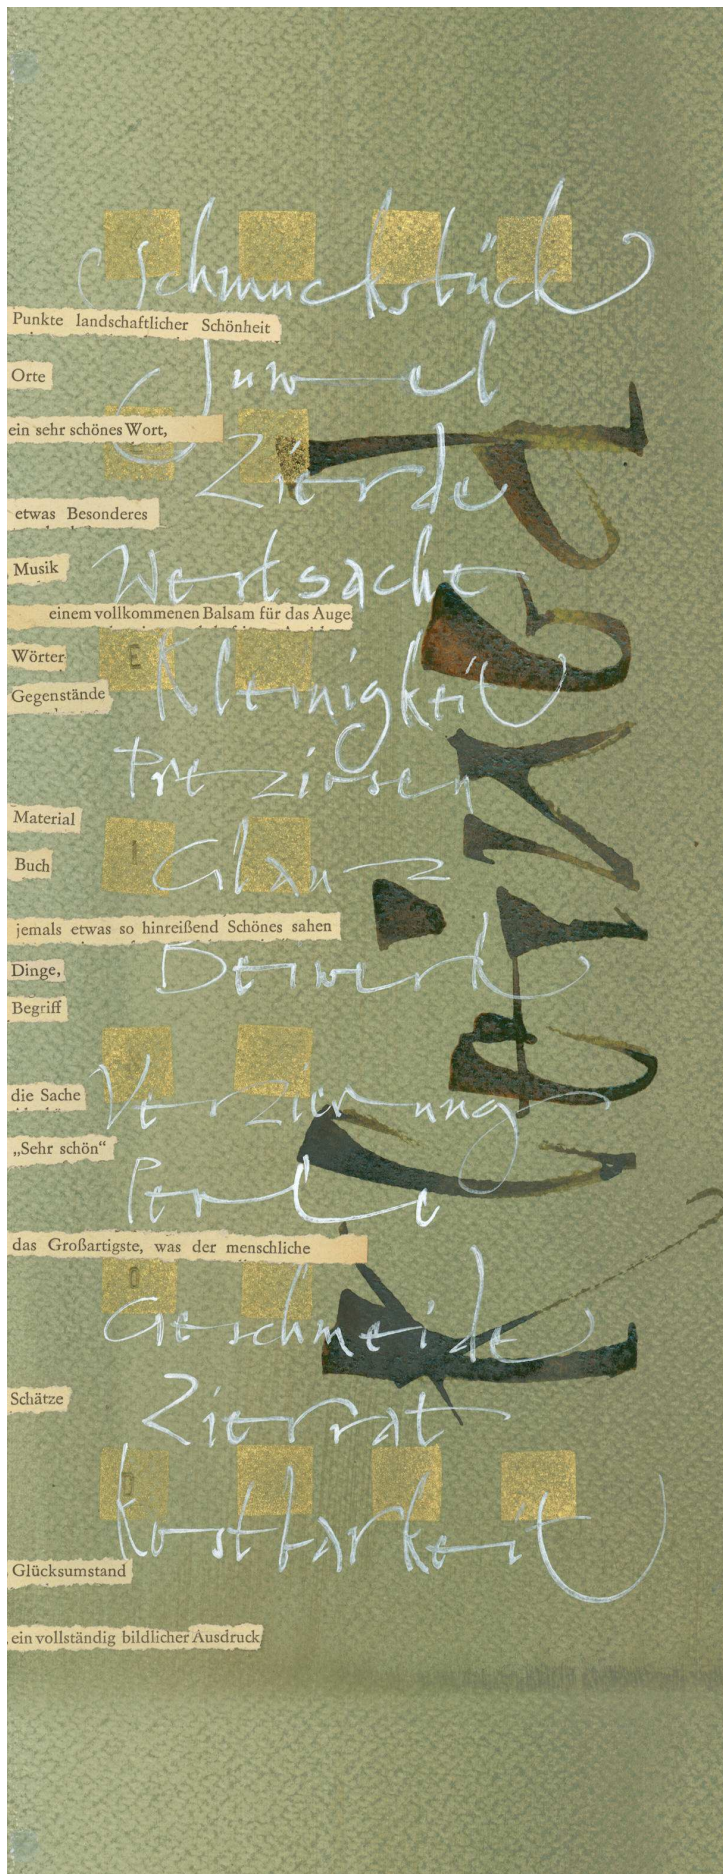 Schmuckstück
Punkte landschaftlicher Schönheit
Juwel
Orte
ein sehr schönes Wort,
Zierde
etwas Besonderes
Wertsache
Musik
einem vollkommenen Balsam für das Auge
Wörter
E
Kleinigkeit
Gegenstände
Preziosen
Material
I
Glanz
Buch
jemals etwas so hinreißend Schönes sahen
Beiwerk
Dinge,
Begriff
die Sache
Verzierung
„Sehr schön“
Perle
das Großartigste, was der menschliche
O
Geschmeide
Schätze
Zierrat
D
Kostbarkeit
Glücksumstand
ein vollständig bildlicher Ausdruck
KLEiNOD